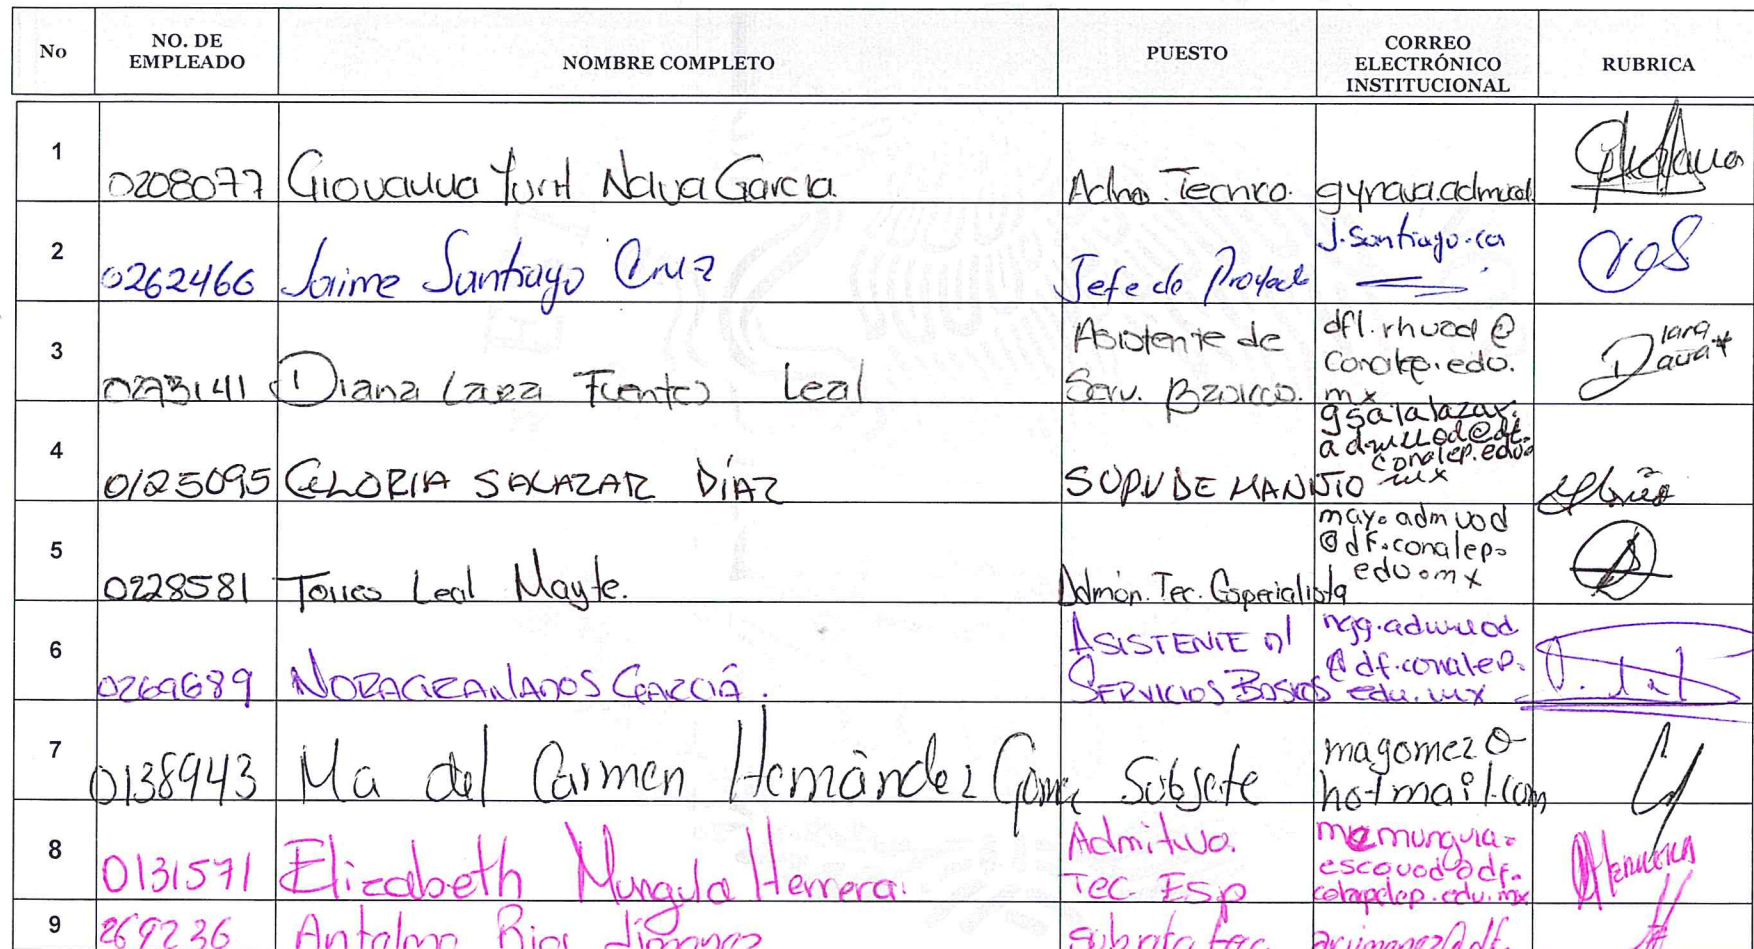 No NO. DE EMPLEADO NOMBRE COMPLETO PUESTO CORREO ELECTRÓNICO INSTITUCIONAL RUBRICA
1 0208077 Giovanna Yurit Nava Garcia Admo. Tecnico. gynava.admuod
2 0262466 Jaime Santiago Cruz Jefe de Proyecto J.Santiago.ca
3 0273141 Diana Lara Fuentes Leal Asistente de Serv. Basicos. dfl.rhuod@conalep.edu.mx
4 0125095 GLORIA SALAZAR DÍAZ SUPV DE MANTTO gsalalazar.admuod@df.conalep.edu.mx
5 0228581 Torres Leal Mayte. Admón. Tec. Especialista may.admuod@df.conalep.edu.mx
6 0269689 NORA GRANADOS GARCÍA. ASISTENTE d/ SERVICIOS BASICOS ngg.admuod@df.conalep.edu.mx
7 0138943 Ma del Carmen Hernández Subjefe magomez@hotmail.com
8 0131571 Elizabeth Munguia Herrera. Admitivo. TEC ESP memunguia.escouod@df.
9 269236 Antelmo Rios Jimenez arjimenez@df.